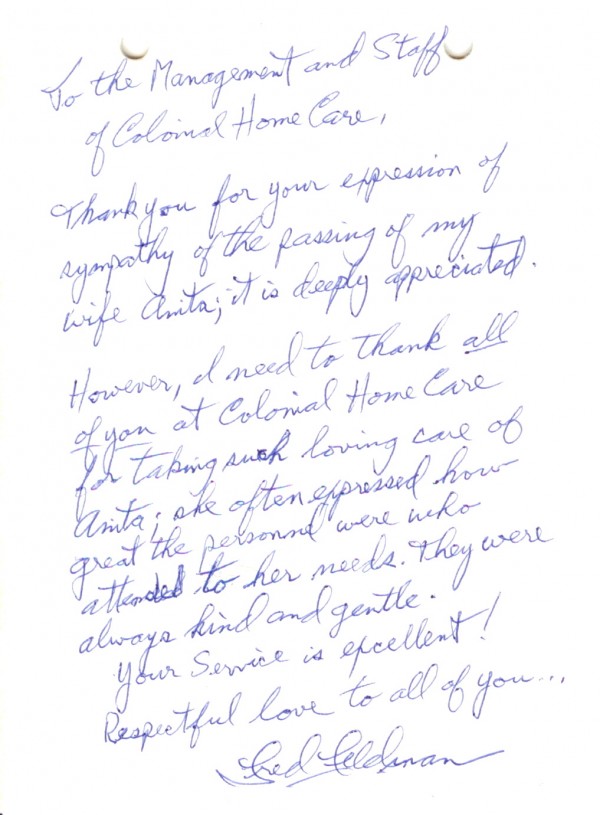 To the Management and Staff
of Colonial Home Care,
Thank you for your expression of
sympathy of the passing of my
wife Anita; it is deeply appreciated.
However, I need to thank all
of you at Colonial Home Care
for taking such loving care of
Anita; she often expressed how
great the personnel were who
attended to her needs. They were
always kind and gentle.
Your Service is excellent!
Respectful love to all of you...
Fred Feldman